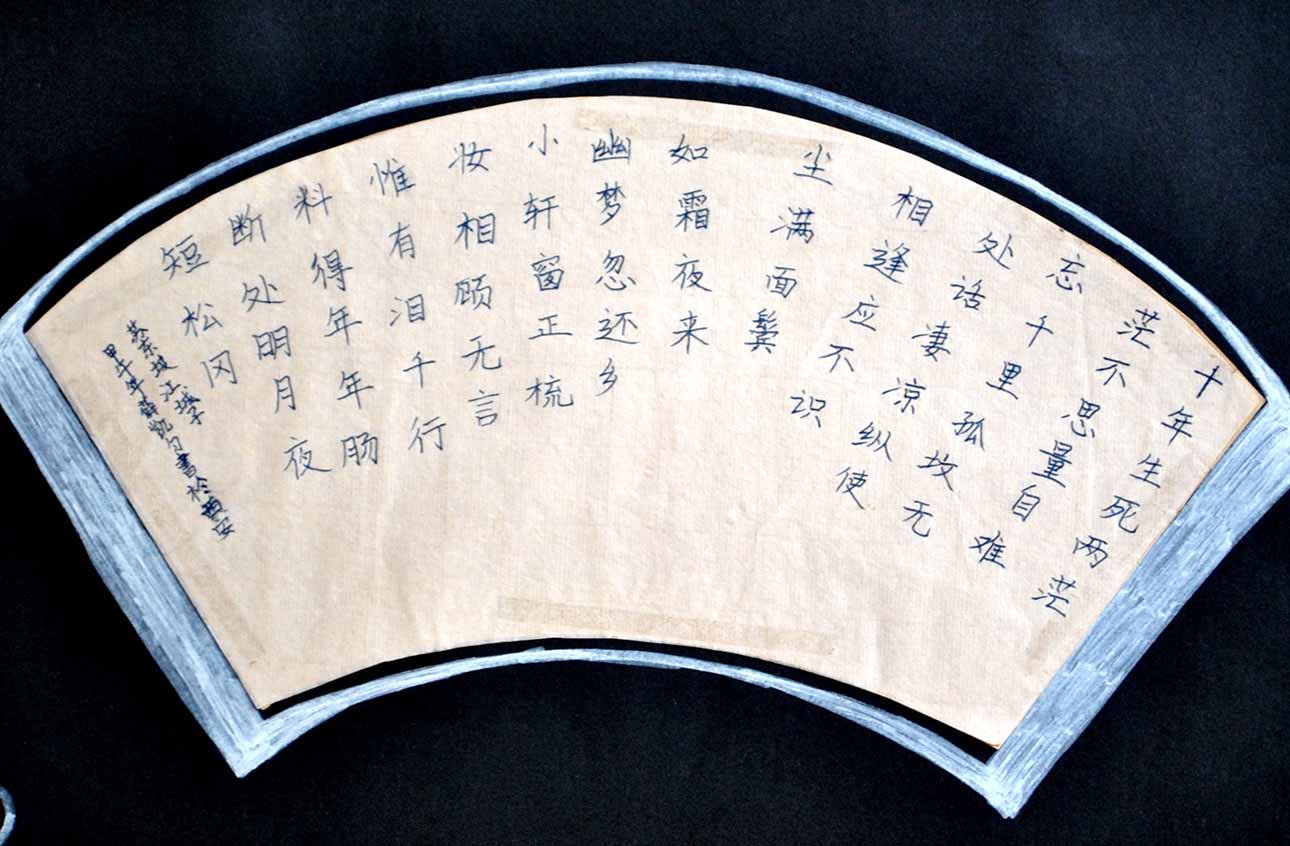 十年生死两茫
茫不思量自难
忘千里孤坟无
处话凄凉纵使
相逢应不识
尘满面鬓
如霜夜来
幽梦忽还乡
小轩窗正梳
妆相顾无言
惟有泪千行
料得年年肠
断处明月夜
短松冈
苏东坡江城子
甲午年薛凯書於西安